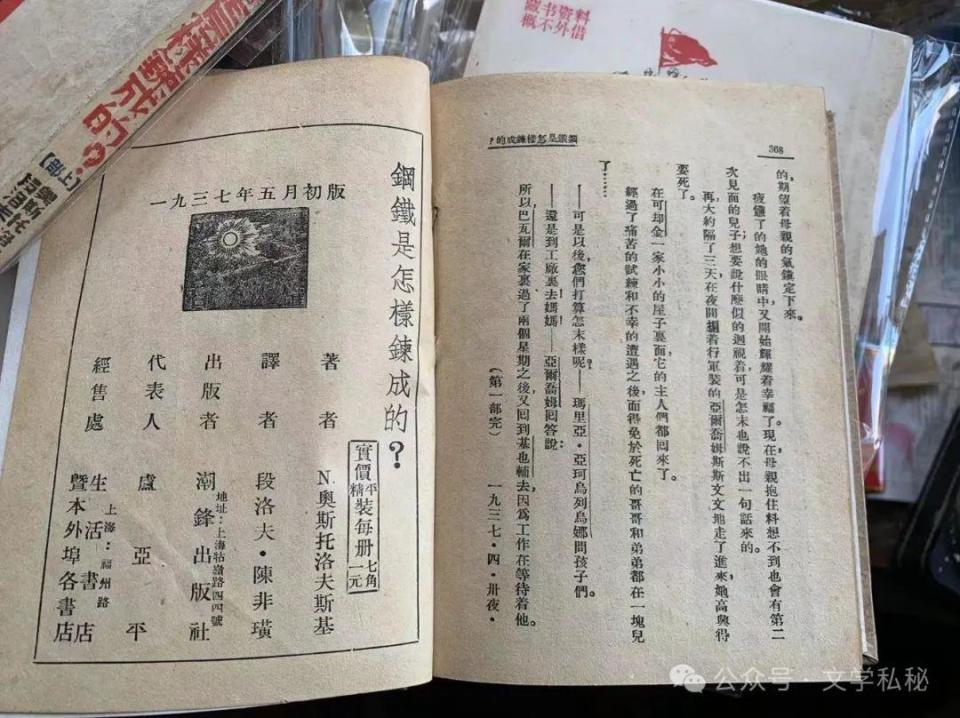 藏书资料
概不外借
368
鋼鐵是怎樣鍊成的?
的,期望着母親的氣鎮定下來。
疲饉了的她的眼睛中,又開始輝耀着幸福了。現在母親抱住料想不到也會有第二
次見面的兒子;想要說什麼似的迴視着,可是怎末也說不出一句話來的。
再大約隔了三天,在夜間揹着行軍裝的亞爾喬姆斯斯文文地走了進來,她高興得
要死了。
在可却金一家小小的屋子裏面,它的主人們都回來了。
經過了痛苦的試鍊和不幸的遭遇之後而得免於死亡的哥哥和弟弟都在一塊兒
了……
——可是以後,您們打算怎末樣呢——瑪里亞·亞珂烏列烏娜問孩子們。
——還是到工廠裏去,媽媽!——亞爾喬姆回答說。
所以巴瓦爾在家裏過了兩個星期之後,又回到基也輔去,因爲工作在等待着他。
(第一部完) 一九三七·四·卅夜·
鋼鐵是怎樣鍊成的?
一九三七年五月初版
實價 平精裝每册 七角 一元
著者 N.奧斯托洛夫斯基
譯者 段洛夫·陳非璜
出版者 潮鋒出版社
地址:上海牯嶺路四四號
代表人 盧亞平
經售處 生活書店
上海:福州路
暨本外埠各書店
【上部】
公众号·文学私秘